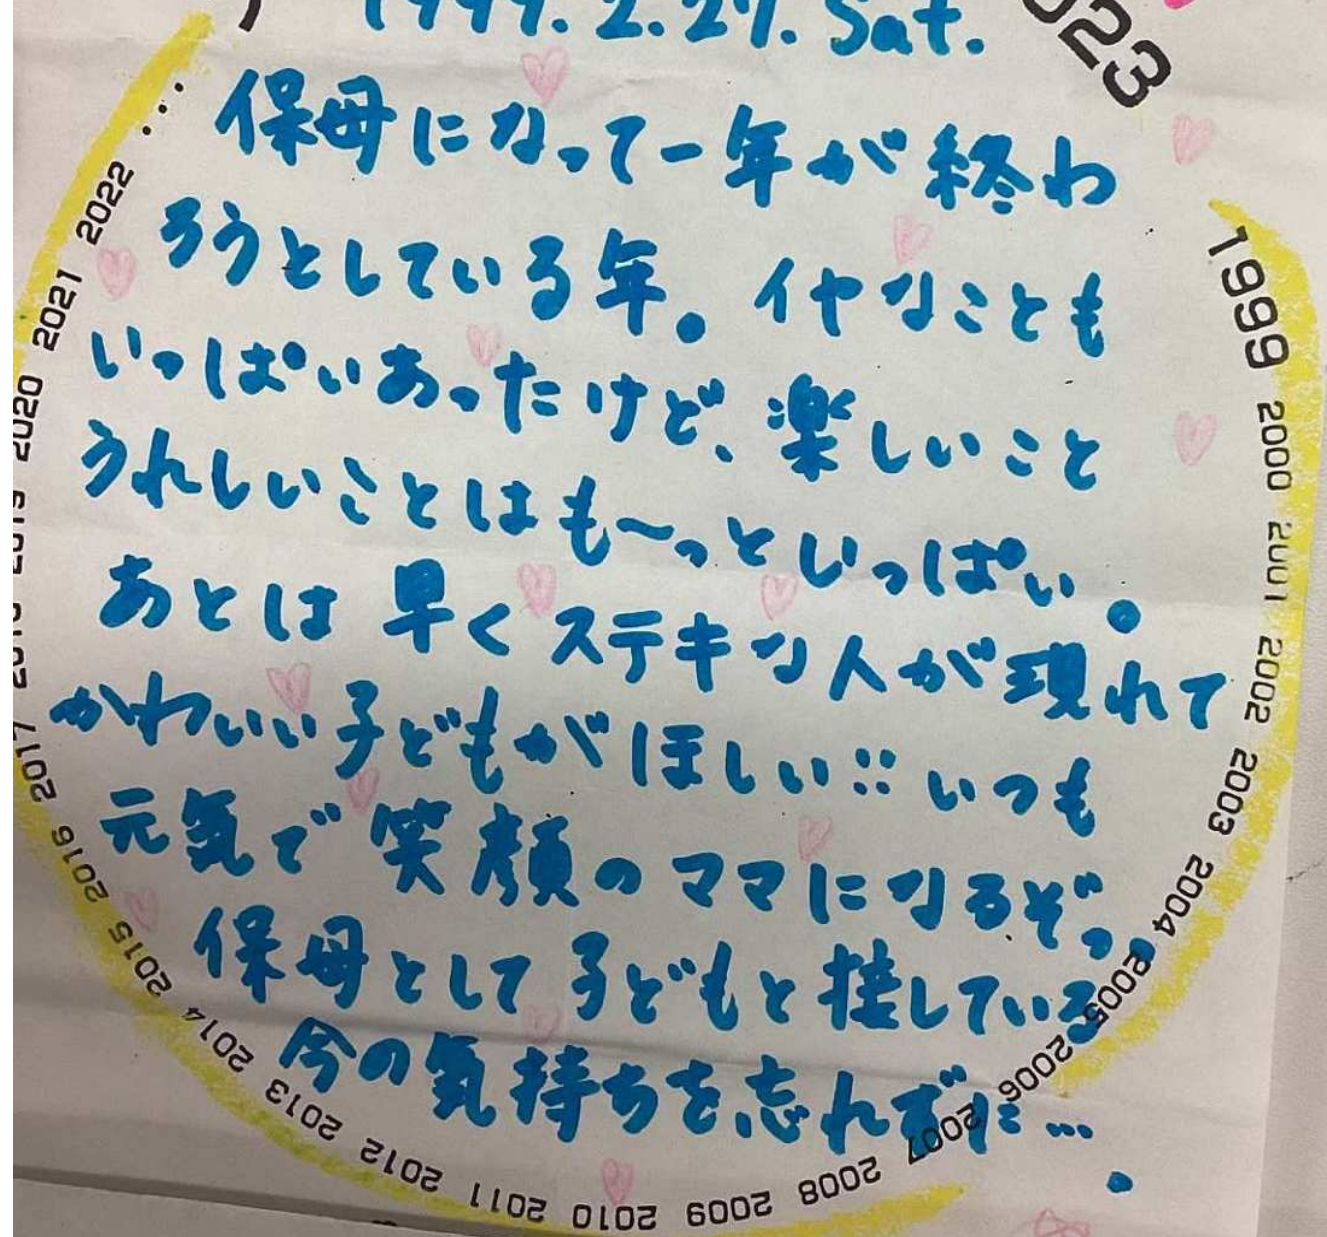 1999.2.27. Sat.
2023
保母になって一年が終わ
ろうとしている年。イヤなことも
いっぱいあったけど、楽しいこと
うれしいことはも〜っといっぱい。
あとは早くステキな人が現れて
かわいい子どもがほしい!! いつも
元気で笑顔のママになるぞっ。
保母として子どもと接している
今の気持ちを忘れずに….
1999 2000 2001 2002 2003 2004 2005 2006 2007 2008 2009 2010 2011 2012 2013 2014 2015 2016 2017 2018 2019 2020 2021 2022 …